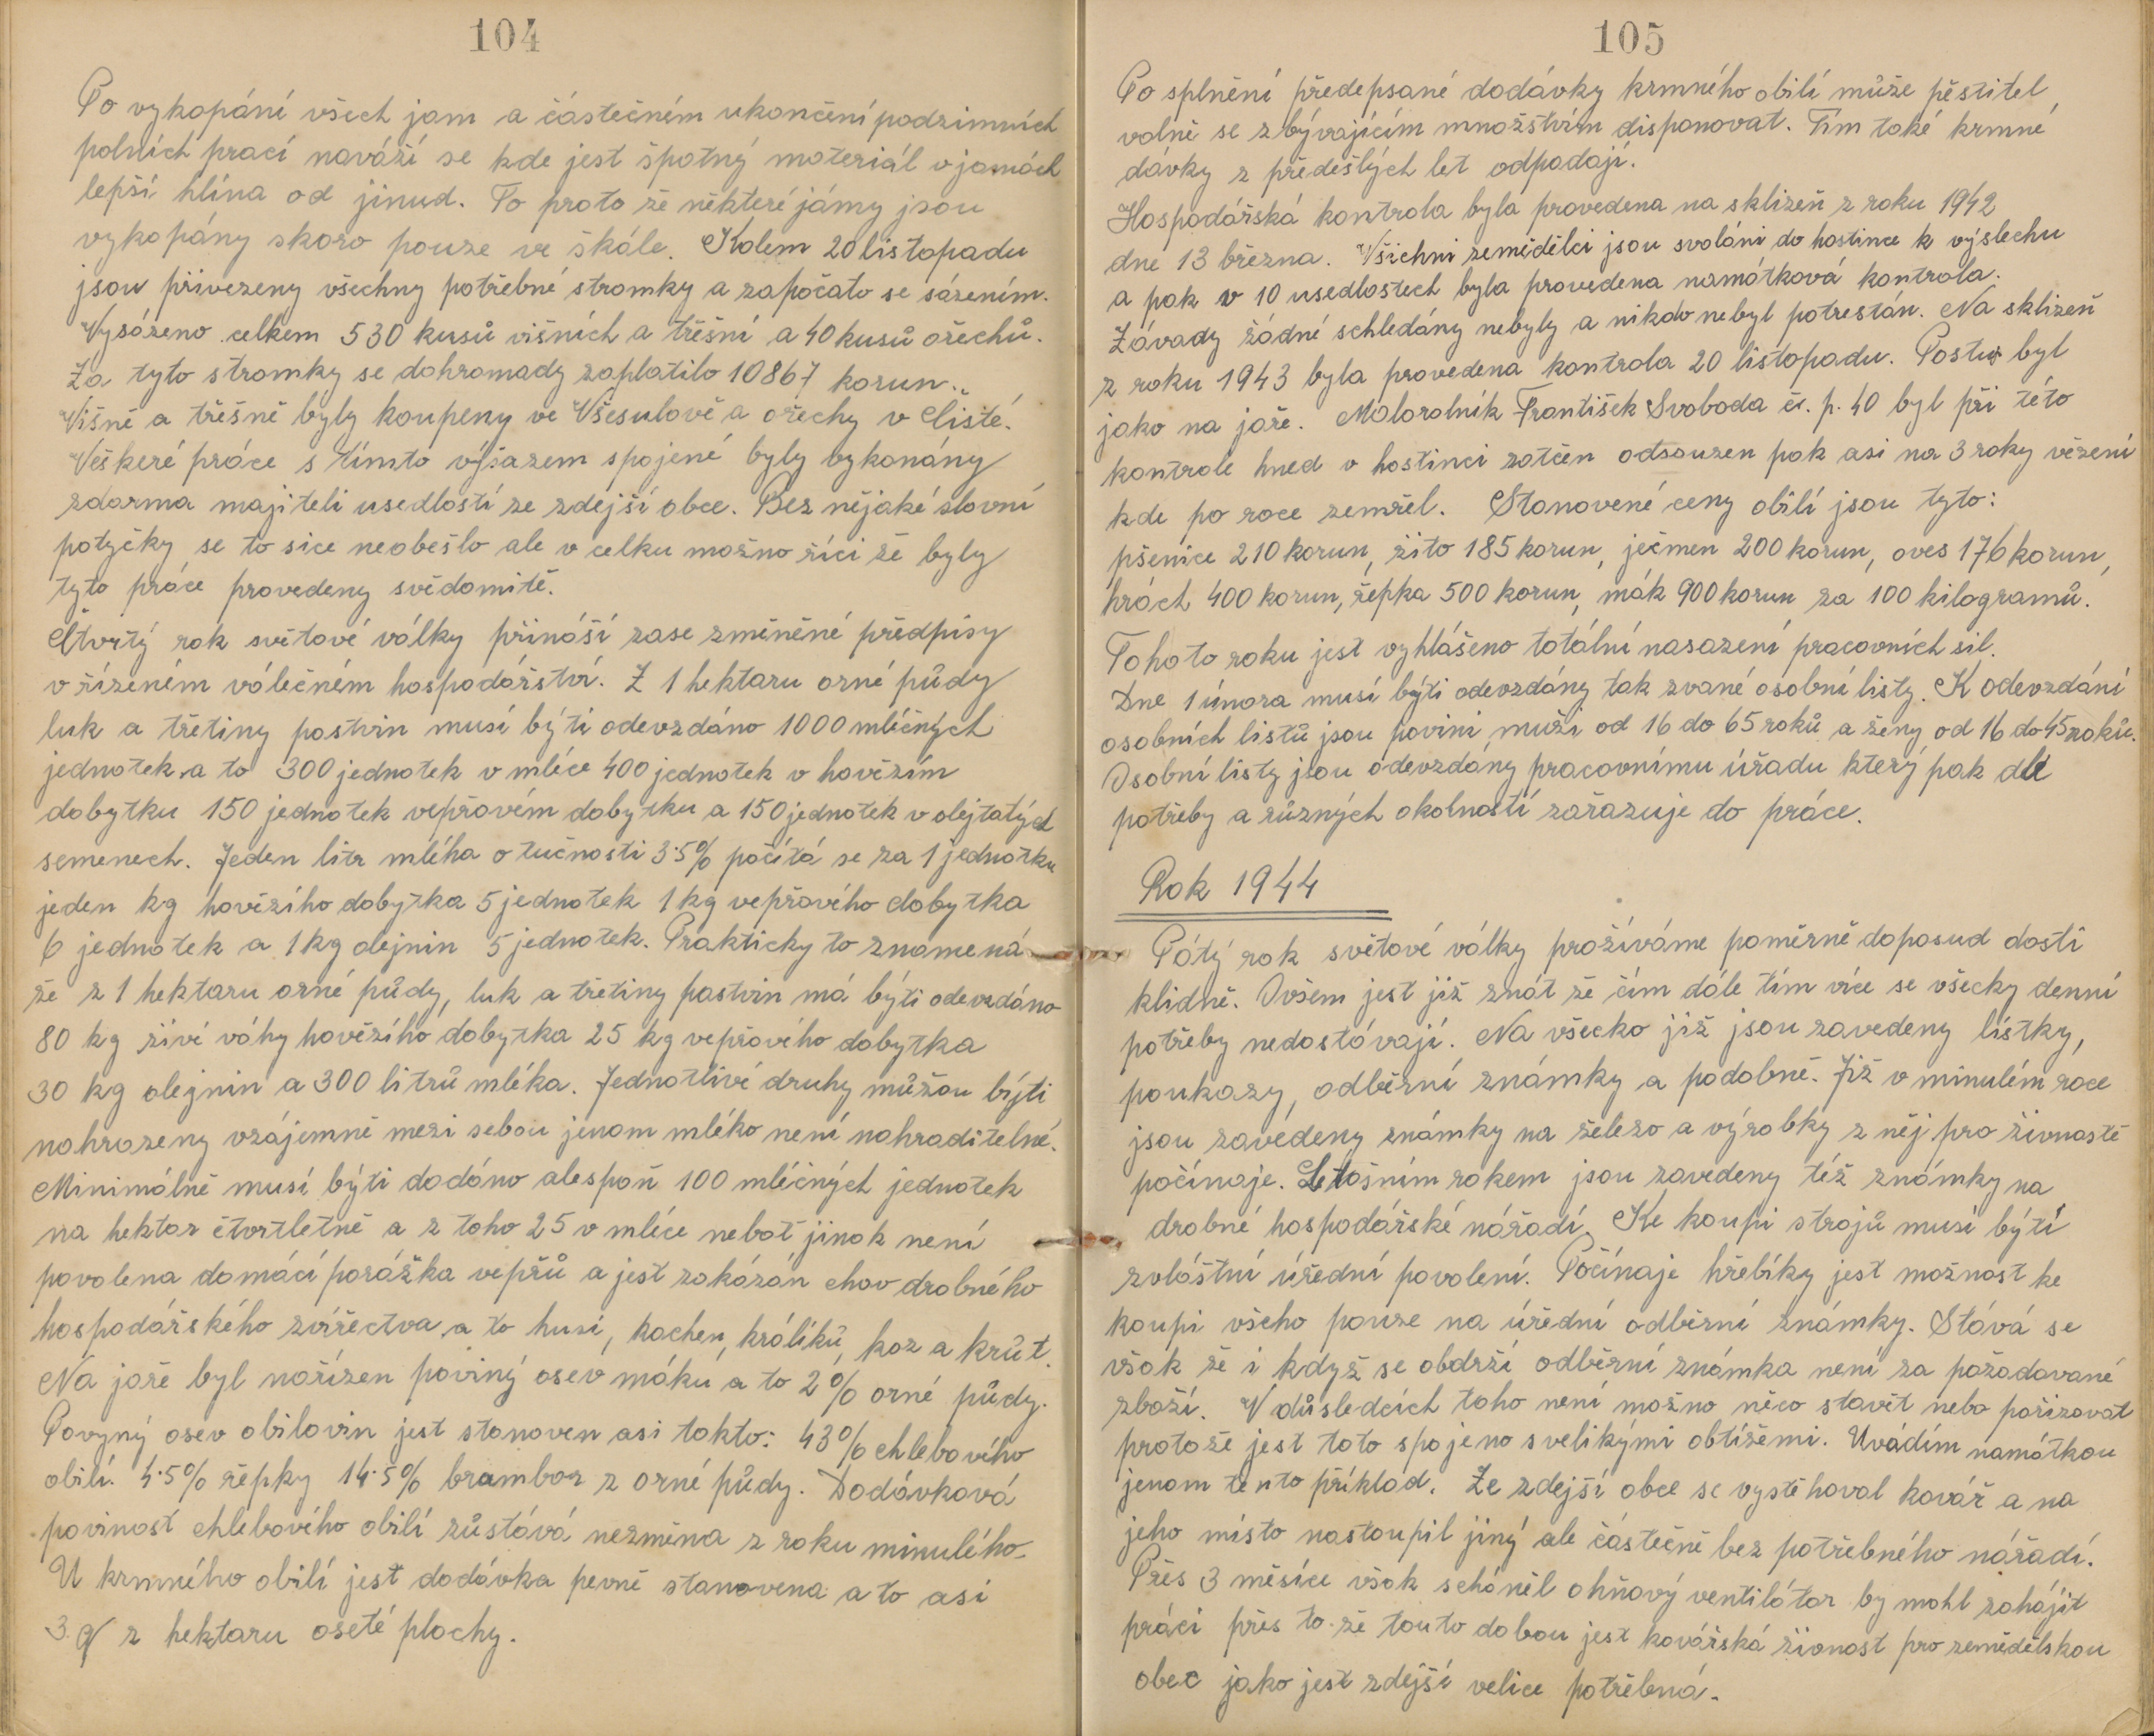 104
Po vykopání všech jam a částečném ukončení podzimních
polních prací naváží se kde jest špatný materiál v jamách
lepší hlína od jinud. To proto že některé jámy jsou
vykopány skoro pouze ve skále. Kolem 20 listopadu
jsou přivezeny všechny potřebné stromky a započato se sázením.
Vysázeno celkem 530 kusů višních a třešní a 40 kusů ořechů.
Za tyto stromky se dohromady zaplatilo 10867 korun.
Višně a třešně byly koupeny ve Všesulově a ořechy v Čisté.
Veškeré práce s tímto výsazem spojené byly vykonány
zdarma majiteli usedlostí ze zdejší obce. Bez nějaké slovní
potyčky se to sice neobešlo ale v celku možno říci že byly
tyto práce provedeny svědomitě.
Čtvrtý rok světové války přináší zase změněné předpisy
v řízeném válečném hospodářství. Z 1 hektaru orné půdy
luk a třetiny pastvin musí býti odevzdáno 1000 mléčných
jednotek a to 300 jednotek v mléce 400 jednotek v hovězím
dobytku 150 jednotek vepřovém dobytku a 150 jednotek v olejtatých
semenech. Jeden litr mléka o tučnosti 3·5% počítá se za 1 jednotku
jeden kg hovězího dobytka 5 jednotek 1 kg vepřového dobytka
6 jednotek a 1 kg olejnin 5 jednotek. Prakticky to znamená
že z 1 hektaru orné půdy, luk a třetiny pastvin má býti odevzdáno
80 kg živé váhy hovězího dobytka 25 kg vepřového dobytka
30 kg olejnin a 300 litrů mléka. Jednotlivé druhy můžou býti
nahrazeny vzájemně mezi sebou jenom mléko není nahraditelné.
Minimálně musí býti dodáno alespoň 100 mléčných jednotek
na hektar čtvrtletně a z toho 25 v mléce neboť jinak není
povolena domácí porážka vepřů a jest zakázán chov drobného
hospodářského zvířectva a to husí, kachen, králíků, koz a krůt.
Na jaře byl nařízen poviný osev máku a to 2% orné půdy.
Povyný osev obilovin jest stanoven asi takto: 43% chlebového
obilí. 4·5% řepky 14·5% brambor z orné půdy. Dodávková
povinost chlebového obilí zůstává nezměna z roku minulého.
U krmného obilí jest dodávka pevně stanovena a to asi
3 q z hektaru oseté plochy.
105
Po splnění předepsané dodávky krmného obilí může pěstitel
volně se zbývajícím množstvím disponovat. Tím také krmné
dávky z předešlých let odpadají.
Hospodářská kontrola byla provedena na sklizeň z roku 1942
dne 13 března. Všichni zemědělci jsou svoláni do hostince k výslechu
a pak v 10 usedlostech byla provedena namátková kontrola.
Závady žádné schledány nebyly a nikdo nebyl potrestán. Na sklizeň
z roku 1943 byla provedena kontrola 20 listopadu. Postup byl
jako na jaře. Malorolník František Svoboda čs. p. 40 byl při této
kontrole hned v hostinci zatčen odsouzen pak asi na 3 roky vězení
kde po roce zemřel. Stanovené ceny obilí jsou tyto:
pšenice 210 korun, žito 185 korun, ječmen 200 korun, oves 176 korun,
hrách 400 korun, řepka 500 korun, mák 900 korun za 100 kilogramů.
Tohoto roku jest vyhlášeno totální nasazení pracovních sil.
Dne 1 února musí býti odevzdány tak zvané osobní listy. K odevzdání
osobních listů jsou povini muži od 16 do 65 roků a ženy od 16 do 45 roků.
Osobní listy jsou odevzdány pracovnímu úřadu který pak dle
potřeby a různých okolností zařazuje do práce.
Rok 1944
Pátý rok světové války prožíváme poměrně doposud dosti
klidně. Ovšem jest již znát že čím dále tím více se všecky denní
potřeby nedostávají. Na všecko již jsou zavedeny lístky,
poukazy, odběrní známky a podobně. Již v minulém roce
jsou zavedeny známky na železo a výrobky z něj pro živnostě
počínaje. Letošním rokem jsou zavedeny též známky na
drobné hospodářské nářadí. Ke koupi strojů musí býti
zvláštní úřední povolení. Počínaje hřebíky jest možnost ke
koupi všeho pouze na úřední odběrní známky. Stává se
však že i když se obdrží odběrní známka není za požadované
zboží. V důsledcích toho není možno něco stavět nebo pořizovat
protože jest toto spojeno s velikými obtížemi. Uvádím namátkou
jenom tento příklad. Ze zdejší obce se vystěhoval kovář a na
jeho místo nastoupil jiný ale částečně bez potřebného nářadí.
Přes 3 měsíce však scháněl ohňový ventilátor by mohl zahájit
práci přes to že touto dobou jest kovářská živnost pro zemědělskou
obec jako jest zdejší velice potřebná.